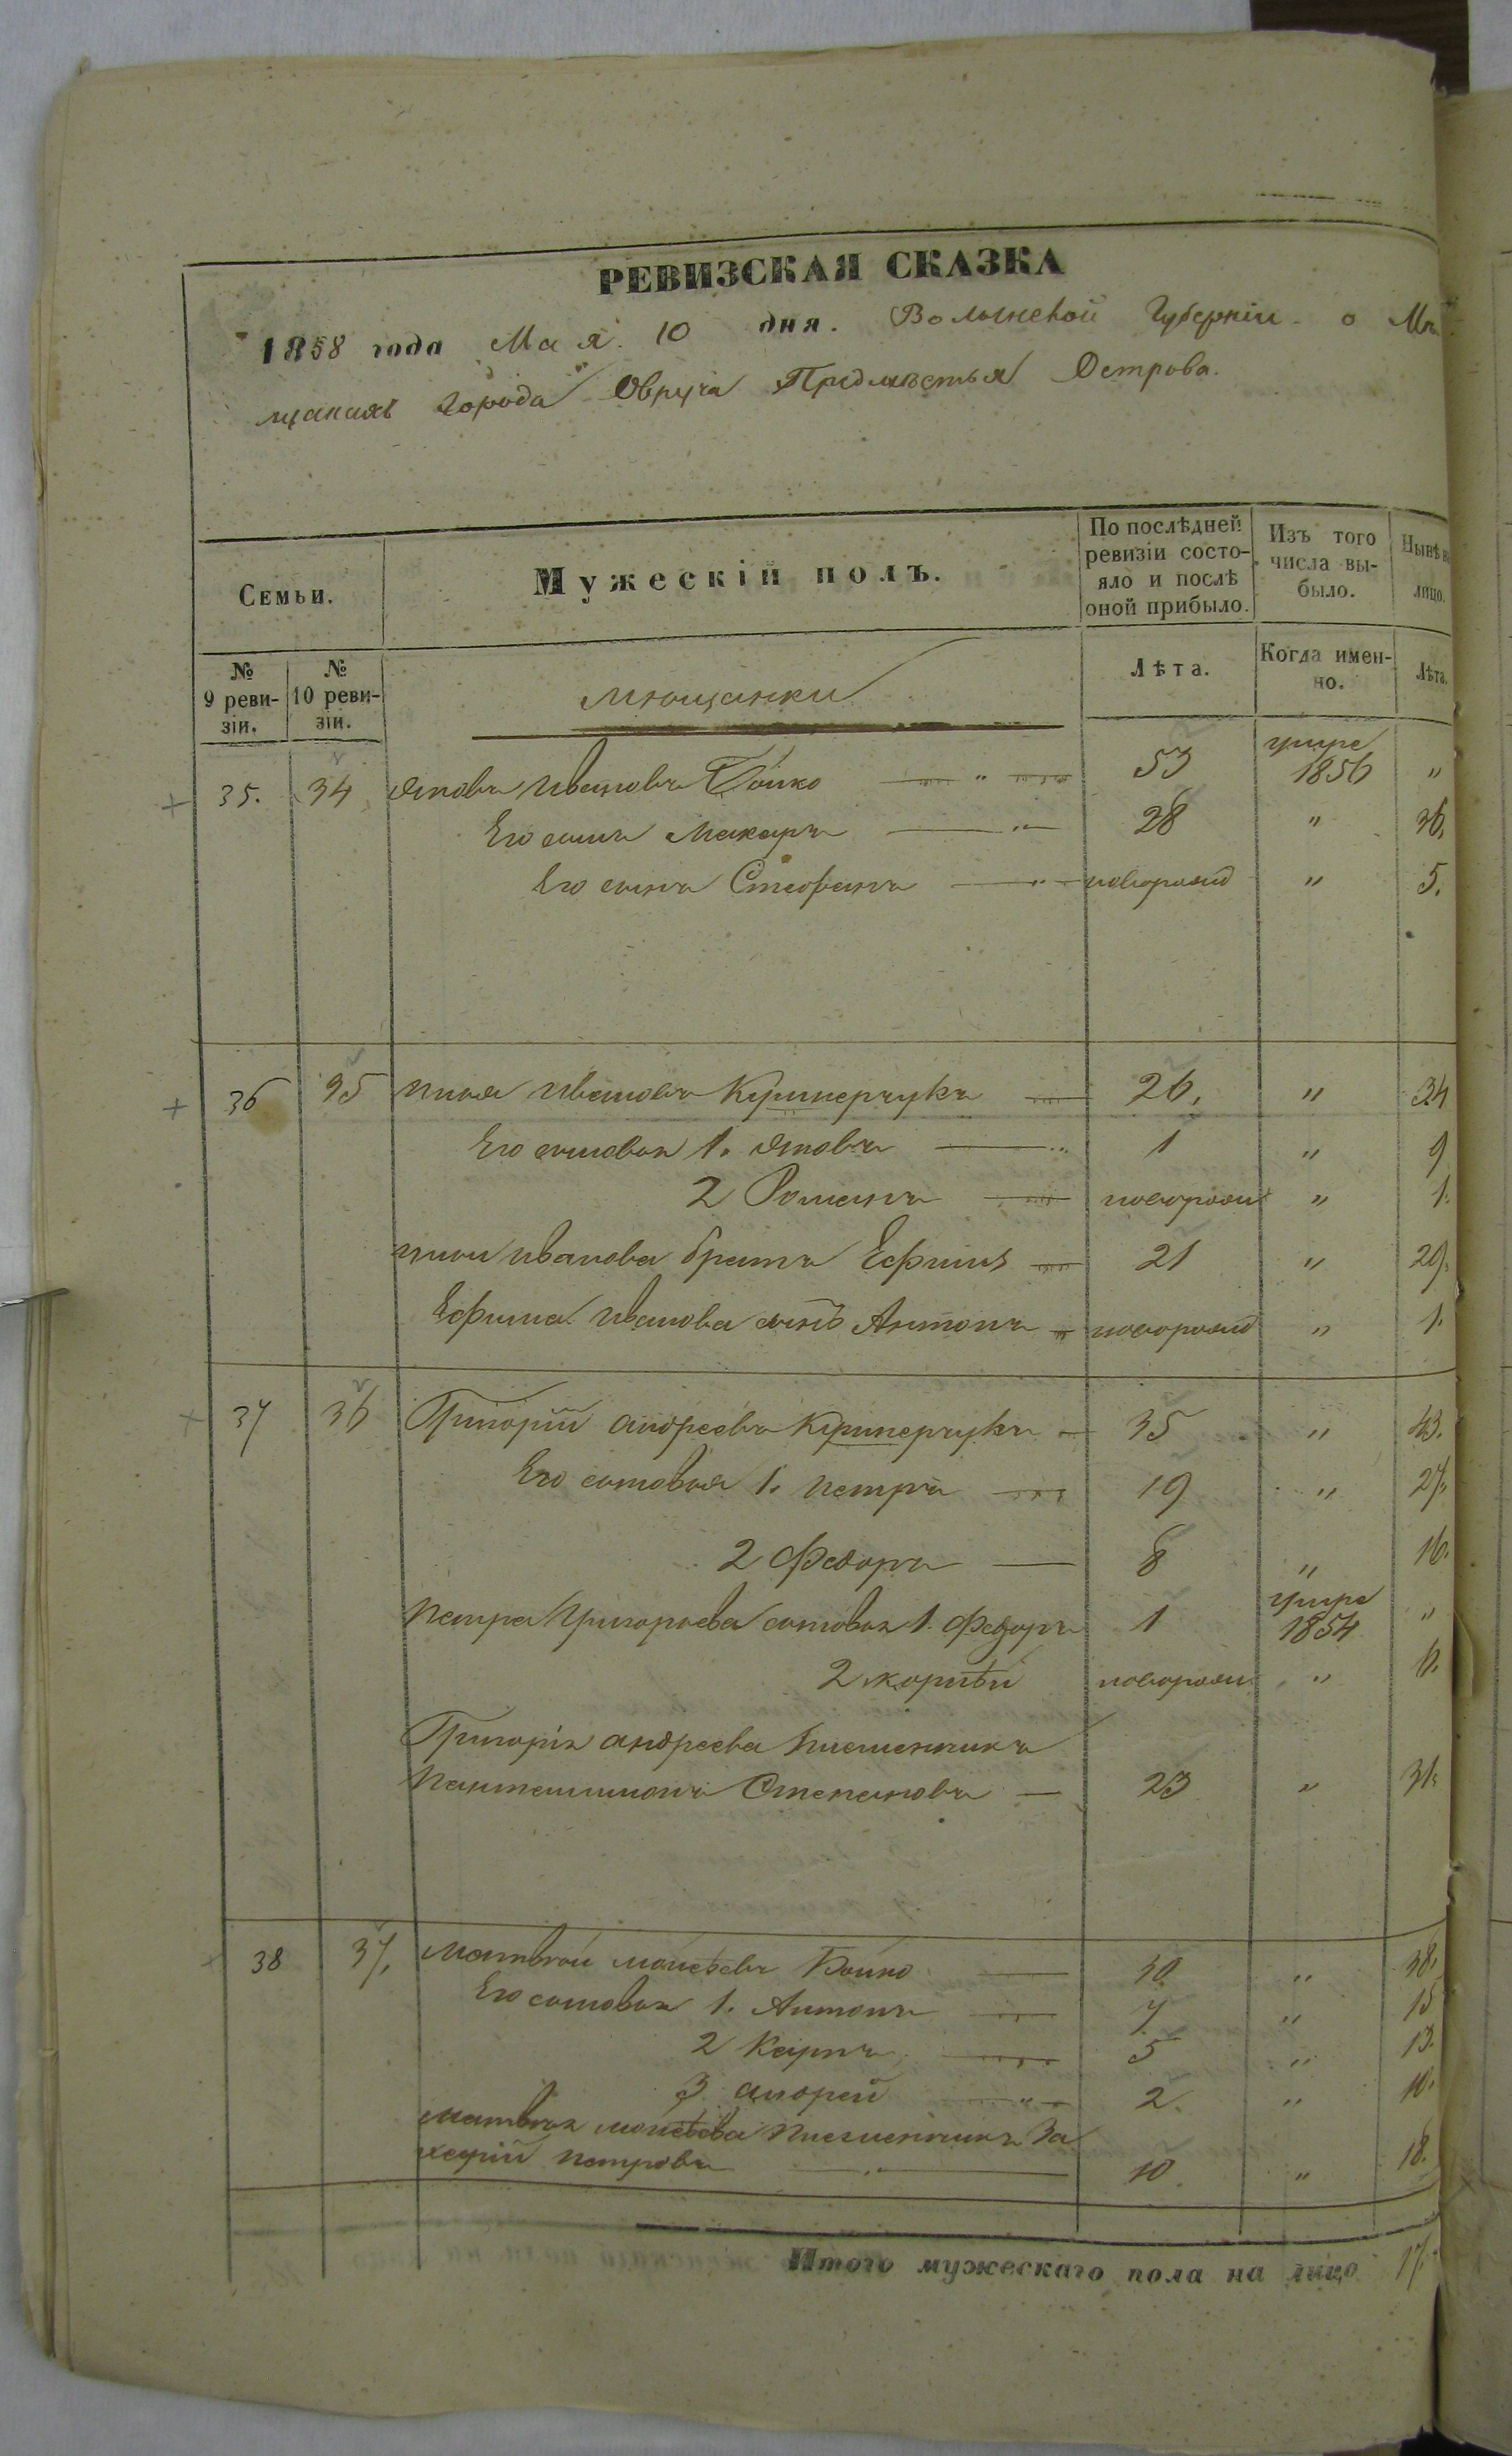 РЕВИЗСКАЯ СКАЗКА
1858 года Мая 10 дня. Волынской Губерніи о Мѣ
щанахъ Города Овруча Предмѣстья Острова.
Семьи.
Мужескій полъ.
По послѣдней ревизіи состо-
яло и послѣ оной прибыло.
Изъ того числа вы-
было.
Нынѣ на лицо.
№ 9 реви-
зіи.
№ 10 реви-
зіи.
Лѣта.
Когда имен-
но.
Лѣта.
35. 34 Яковъ Ивановъ Бойко 53 умре 1856 "
Его сынъ Макаръ 28 " 36.
Его сынъ Стефанъ новорожд " 5.
36 35 Илья Ивановъ Кушнерчукъ 26. " 34
Его сыновья 1. Яковъ 1 " 9
2 Романъ новорожд " 1.
Ильи Иванова братъ Ефимъ 21 " 29.
Ефима Иванова сынъ Антонъ новорожд " 1.
37 36 Григорій Андреевъ Кушнерчукъ 35 " 43.
Его сыновья 1. Петръ 19 " 27.
2 Федоръ 8 " 16.
Петра Григорьева сыновья 1. Федоръ 1 умре 1854 "
2 новорожд " 6.
Григорія Андреева племянникъ
Пантелимонъ Степановъ 23 " 31.
38 37. Матвѣй Моисѣевъ Бойко 30 " 38.
Его сыновья 1. Антонъ 7 " 15
2 Карпъ 5 " 13.
3 Андрей 2. " 10.
Матвѣя Моисѣева племянникъ За
харій Петровъ 10. " 18.
Итого мужескаго пола на лицо 17.